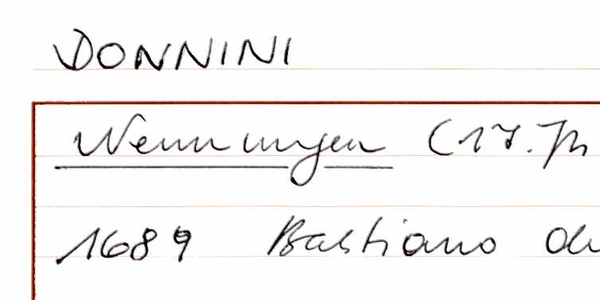 DONNINI
Nennungen (17. Jh
1689 Bastiano de